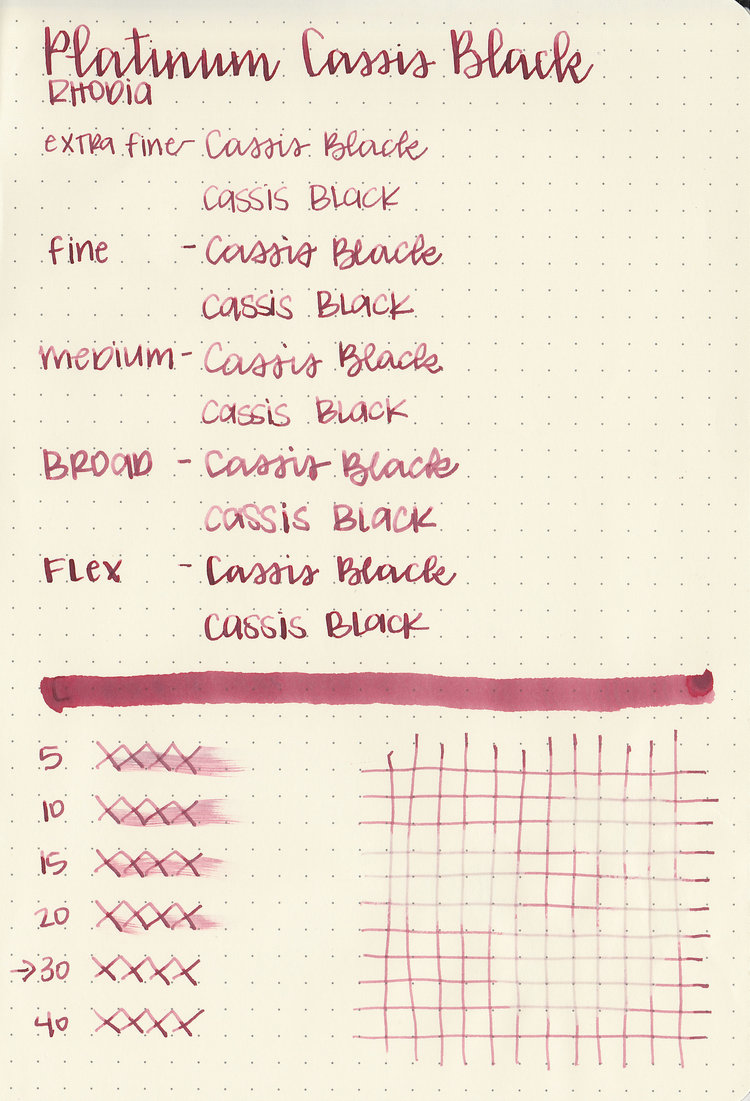 Platinum Cassis Black
RHODIA
extra fine - Cassis Black
CASSIS BLACK
fine - Cassis Black
CASSIS BLACK
medium - Cassis Black
CASSIS BLACK
BROAD - Cassis Black
CASSIS BLACK
Flex - Cassis Black
CASSIS BLACK
5 XXXX
10 XXXX
15 XXXX
20 XXXX
→30 XXXX
40 XXXX